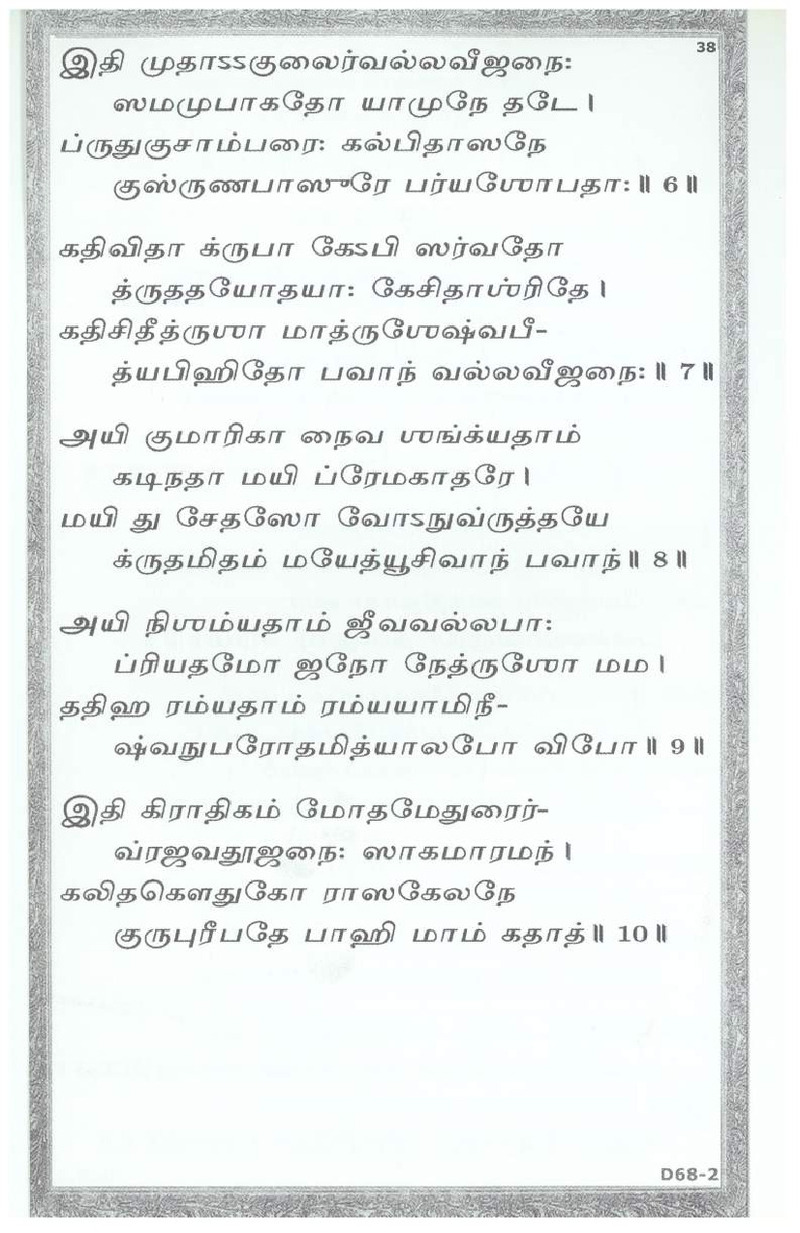 38
இதி முதாऽऽகுலைர்வல்லவீஜனை:
ஸமமுபாகதோ யாமுநே தடே।
ப்ருதுகுசாம்பரை: கல்பிதாஸநே
குஸ்ருணபாஸுரே பர்யஶோபதா:॥ 6॥
கதிவிதா க்ருபா கேऽபி ஸர்வதோ
த்ருததயோதயா: கேசிதாஶ்ரிதே।
கதிசிதீத்ருஶா மாத்ருஶேஷ்வபீ-
த்யபிஹிதோ பவாந் வல்லவீஜநை:॥ 7॥
அயி குமாரிகா நைவ ஶங்க்யதாம்
கடிநதா மயி ப்ரேமகாதரே।
மயி து சேதஸோ வோऽநுவ்ருத்தயே
க்ருதமிதம் மயேத்யூசிவாந் பவாந்॥ 8॥
அயி நிஶம்யதாம் ஜீவவல்லபா:
ப்ரியதமோ ஜநோ நேத்ருஶோ மம।
ததிஹ ரம்யதாம் ரம்யயாமிநீ-
ஷ்வநுபரோதமித்யாலபோ விபோ॥ 9॥
இதி கிராதிகம் மோதமேதுரைர்-
வ்ரஜவதூஜநை: ஸாகமாரமந்।
கலிதகௌதுகோ ராஸகேலநே
குருபுரீபதே பாஹி மாம் கதாத்॥ 10॥
D68-2